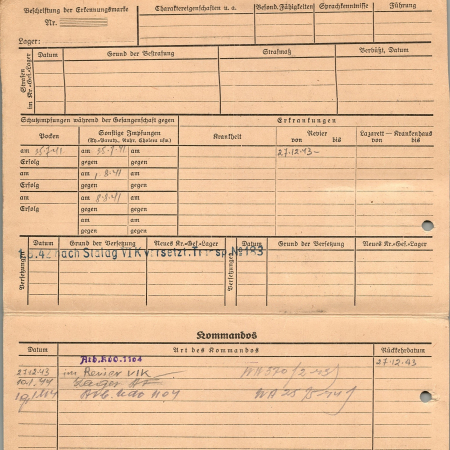 Beschriftung der Erkennungsmarke
Nr.
Lager:
Charaktereigenschaften u. a.
Besond. Fähigkeiten
Sprachkenntnisse
Führung
Strafen im Kr.-Gef.-Lager
Datum
Grund der Bestrafung
Strafmaß
Verbüßt, Datum
Schutzimpfungen während der Gefangenschaft gegen
Erkrankungen
Pocken
Sonstige Impfungen
(Ty.-Paraty., Ruhr, Cholera usw.)
Krankheit
Revier
von bis
Lazarett — Krankenhaus
von bis
am am am
27.12.43-
Erfolg gegen gegen
am am 1.8.41 am
Erfolg gegen gegen
am am 8.8.41 am
Erfolg gegen gegen
am am
gegen gegen
Versetzungen
Datum
Grund der Versetzung
Neues Kr.-Gef.-Lager
Versetzungen
Datum
Grund der Versetzung
Neues Kr.-Gef.-Lager
nach Stalag VI K versetzt. Transp. No 183
Kommandos
Datum
Art des Kommandos
Rückkehrdatum
Arb.Kdo.1104
27.12.43
27.12.43 im Revier VIK
10.1.44
Arb. Kdo 1104